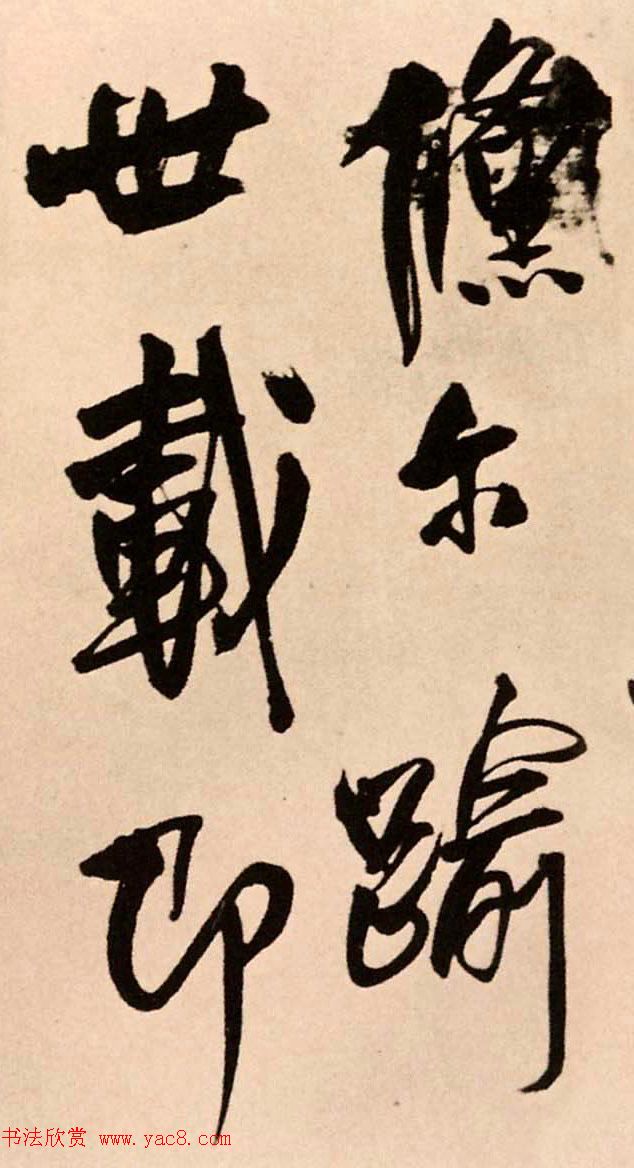 儵尔踰
丗載即
书法欣赏 www.yac8.com